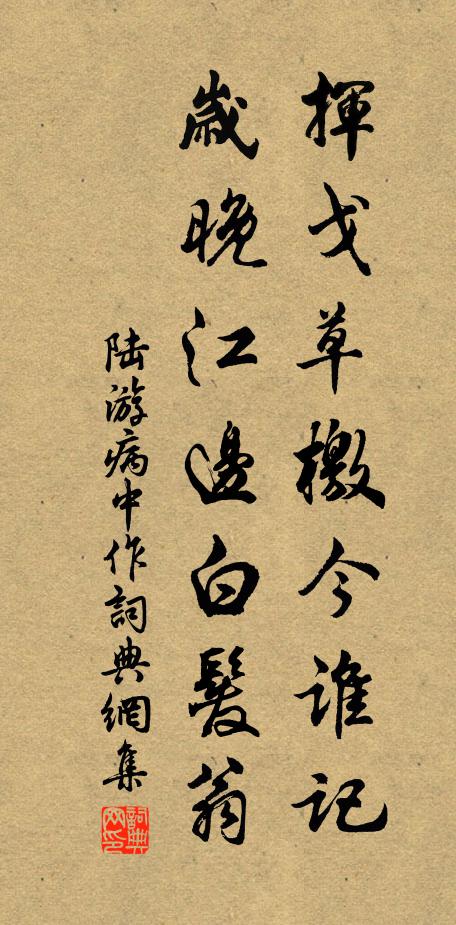 揮戈草檄今誰記
歲晚江邊白髮翁
陆游病中作詞典網集
詞典网印